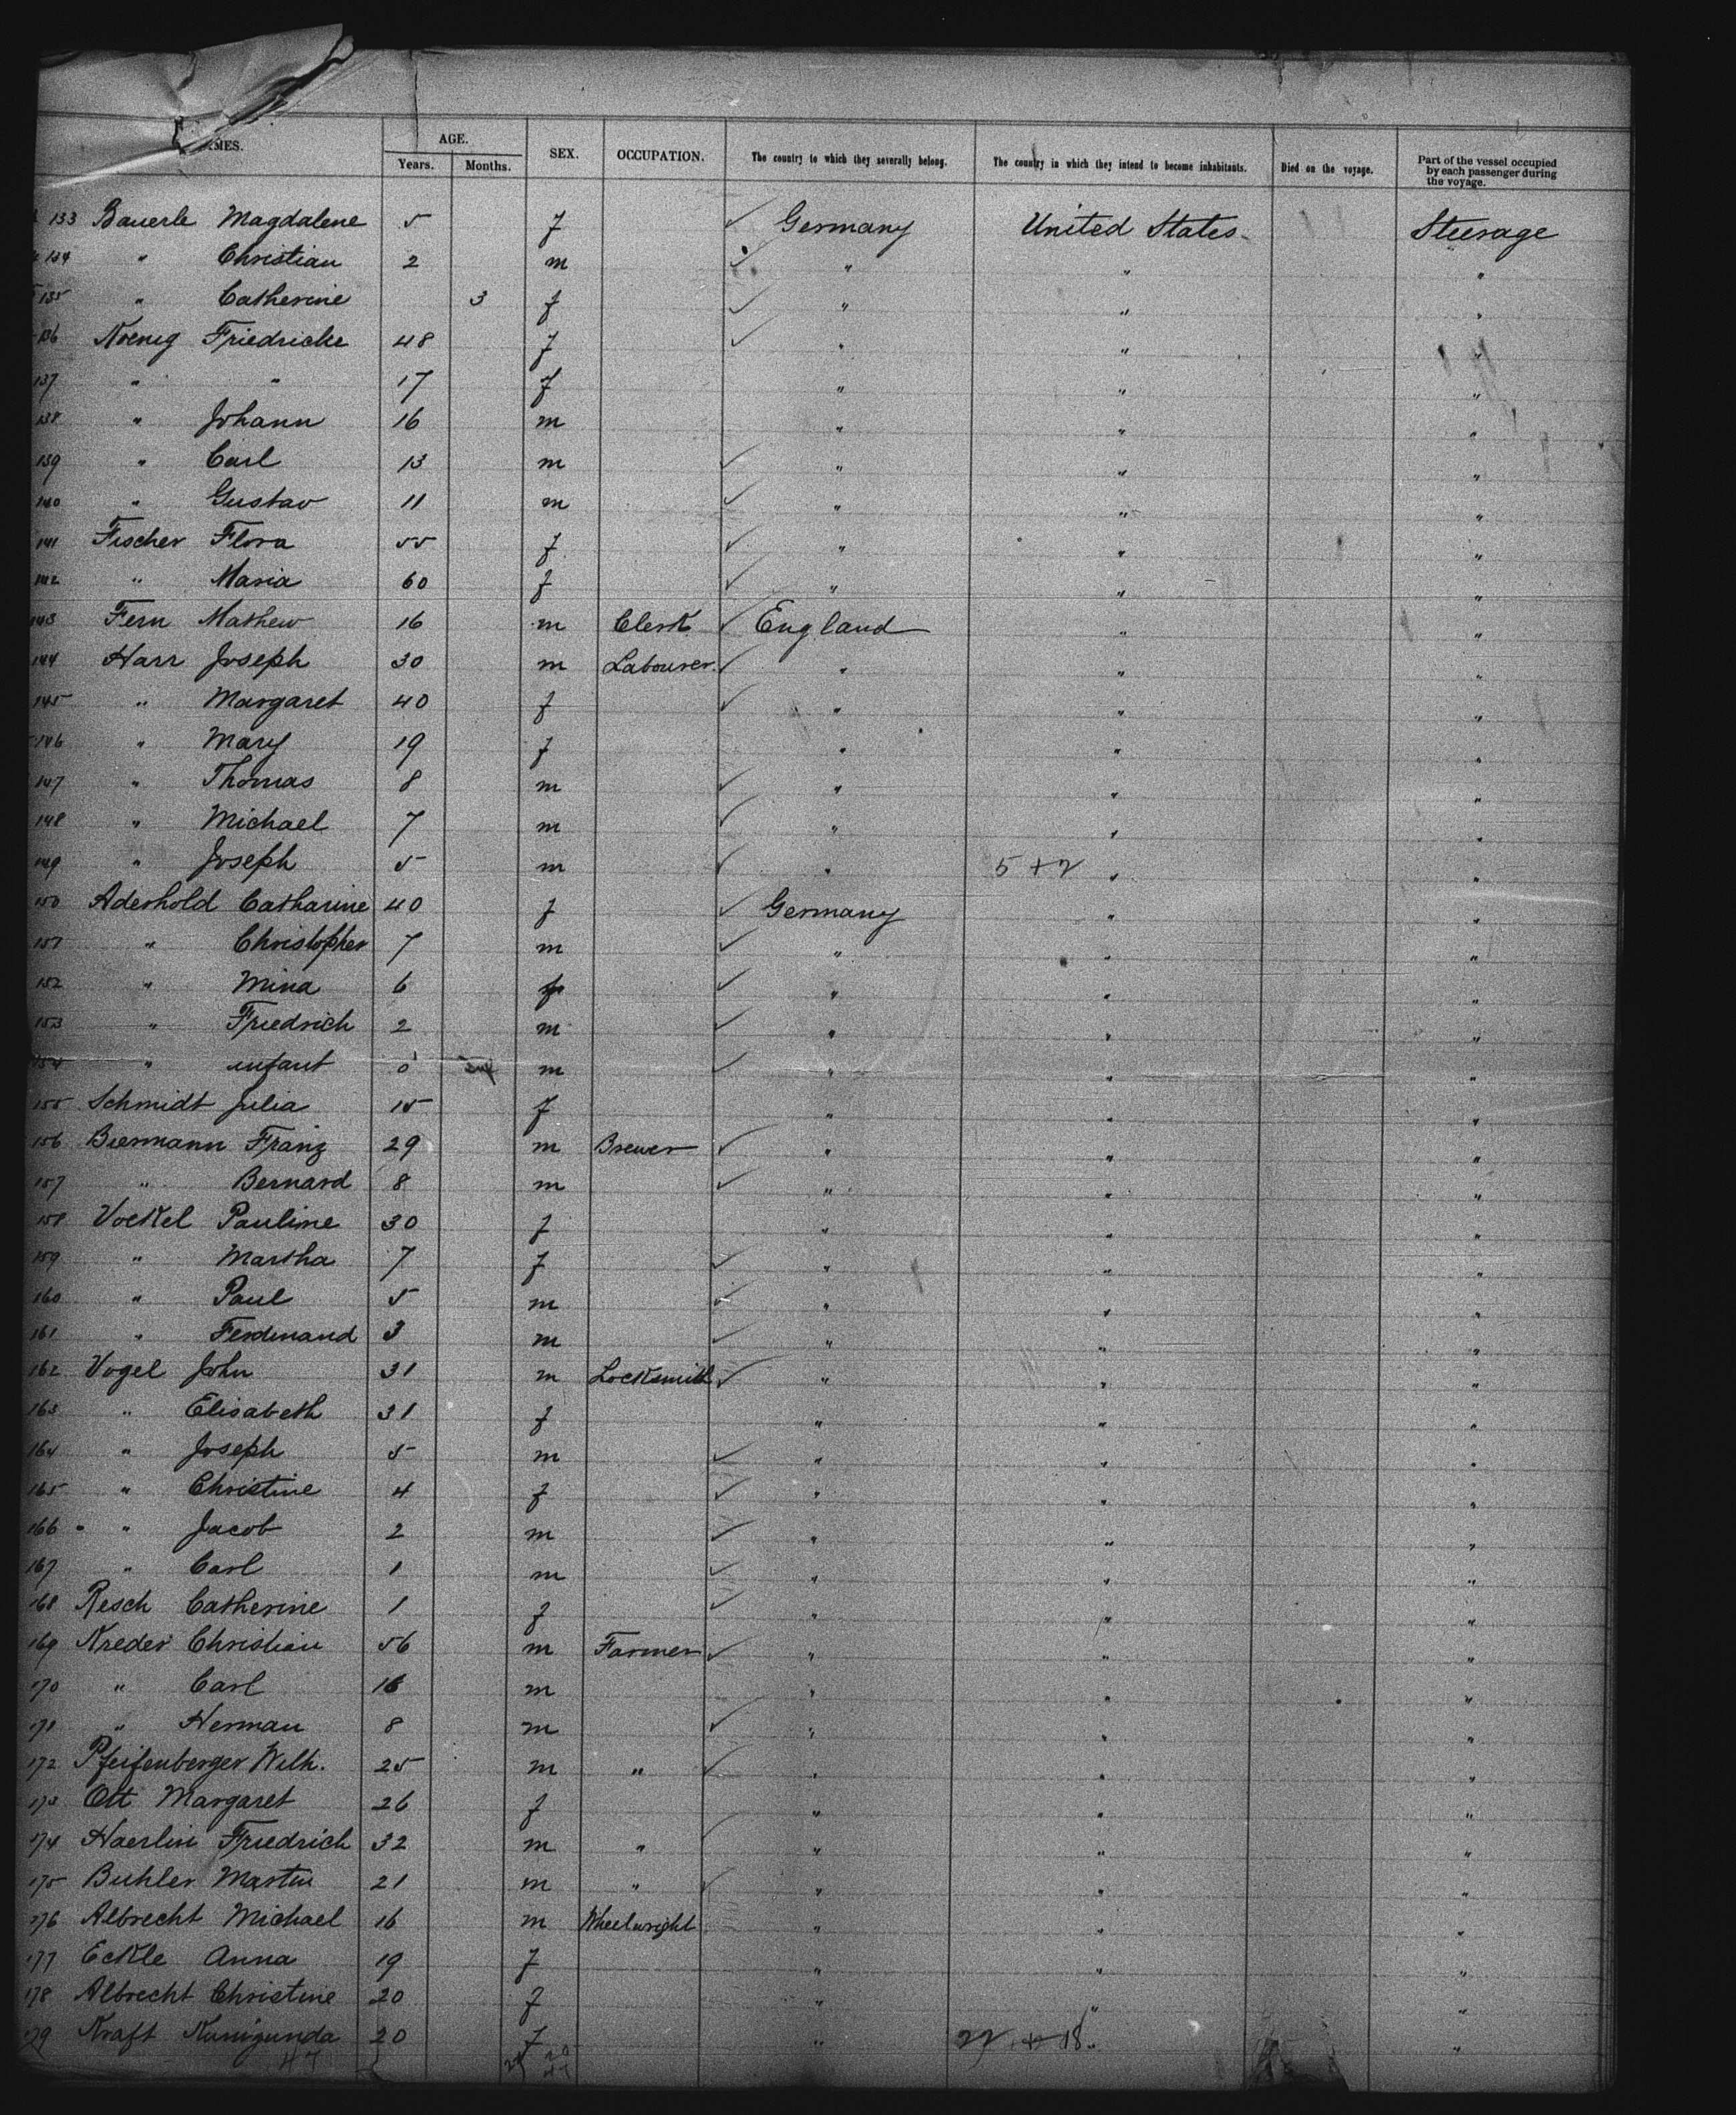 AGE.
MES. Years. Months. SEX. OCCUPATION. The country to which they severally belong. The country in which they intend to become inhabitants. Died on the voyage. Part of the vessel occupied by each passenger during the voyage.
133 Bauerle Magdalene 5 f ✓ Germany United States Steerage
134 " Christian 2 m ✓ " " "
135 " Catherine 3 f ✓ " " "
136 Koenig Friedricke 48 f ✓ " " "
137 " " 17 f " " "
138 " Johann 16 m " " "
139 " Carl 13 m ✓ " " "
140 " Gustav 11 m ✓ " " "
141 Fischer Flora 55 f ✓ " " "
142 " Maria 60 f ✓ " " "
143 Fern Mathew 16 m Clerk ✓ England " "
144 Harr Joseph 30 m Labourer ✓ " " "
145 " Margaret 40 f ✓ " " "
146 " Mary 19 f " " "
147 " Thomas 8 m ✓ " " "
148 " Michael 7 m ✓ " " "
149 " Joseph 5 m ✓ " 5 + 2 " "
150 Aderhold Catharine 40 f ✓ Germany " "
151 " Christopher 7 m ✓ " " "
152 " Mina 6 f ✓ " " "
153 " Friedrich 2 m ✓ " " "
154 " infant 0 m ✓ " " "
155 Schmidt Julia 15 f " " "
156 Biermann Franz 29 m Brewer ✓ " " "
157 " Bernard 8 m ✓ " " "
158 Voekel Pauline 30 f " " "
159 " Martha 7 f ✓ " " "
160 " Paul 5 m ✓ " " "
161 " Ferdinand 3 m ✓ " " "
162 Vogel John 31 m Locksmith ✓ " " "
163 " Elisabeth 31 f " " "
164 " Joseph 5 m ✓ " " "
165 " Christine 4 f ✓ " " "
166 " Jacob 2 m ✓ " " "
167 " Carl 1 m ✓ " " "
168 Resch Catherine 1 f ✓ " " "
169 Kreder Christian 56 m Farmer ✓ " " "
170 " Carl 16 m " " "
171 " Herman 8 m ✓ " " "
172 Pfeifenberger Wilh. 25 m " ✓ " " "
173 Ott Margaret 26 f " " "
174 Haerlin Friedrich 32 m " ✓ " " "
175 Buhler Martin 21 m " ✓ " " "
176 Albrecht Michael 16 m Wheelwright " " "
177 Eckle Anna 19 f " " "
178 Albrecht Christine 20 f " " "
179 Kraft Kunigunda 20 f " 22 + 18 " "
47